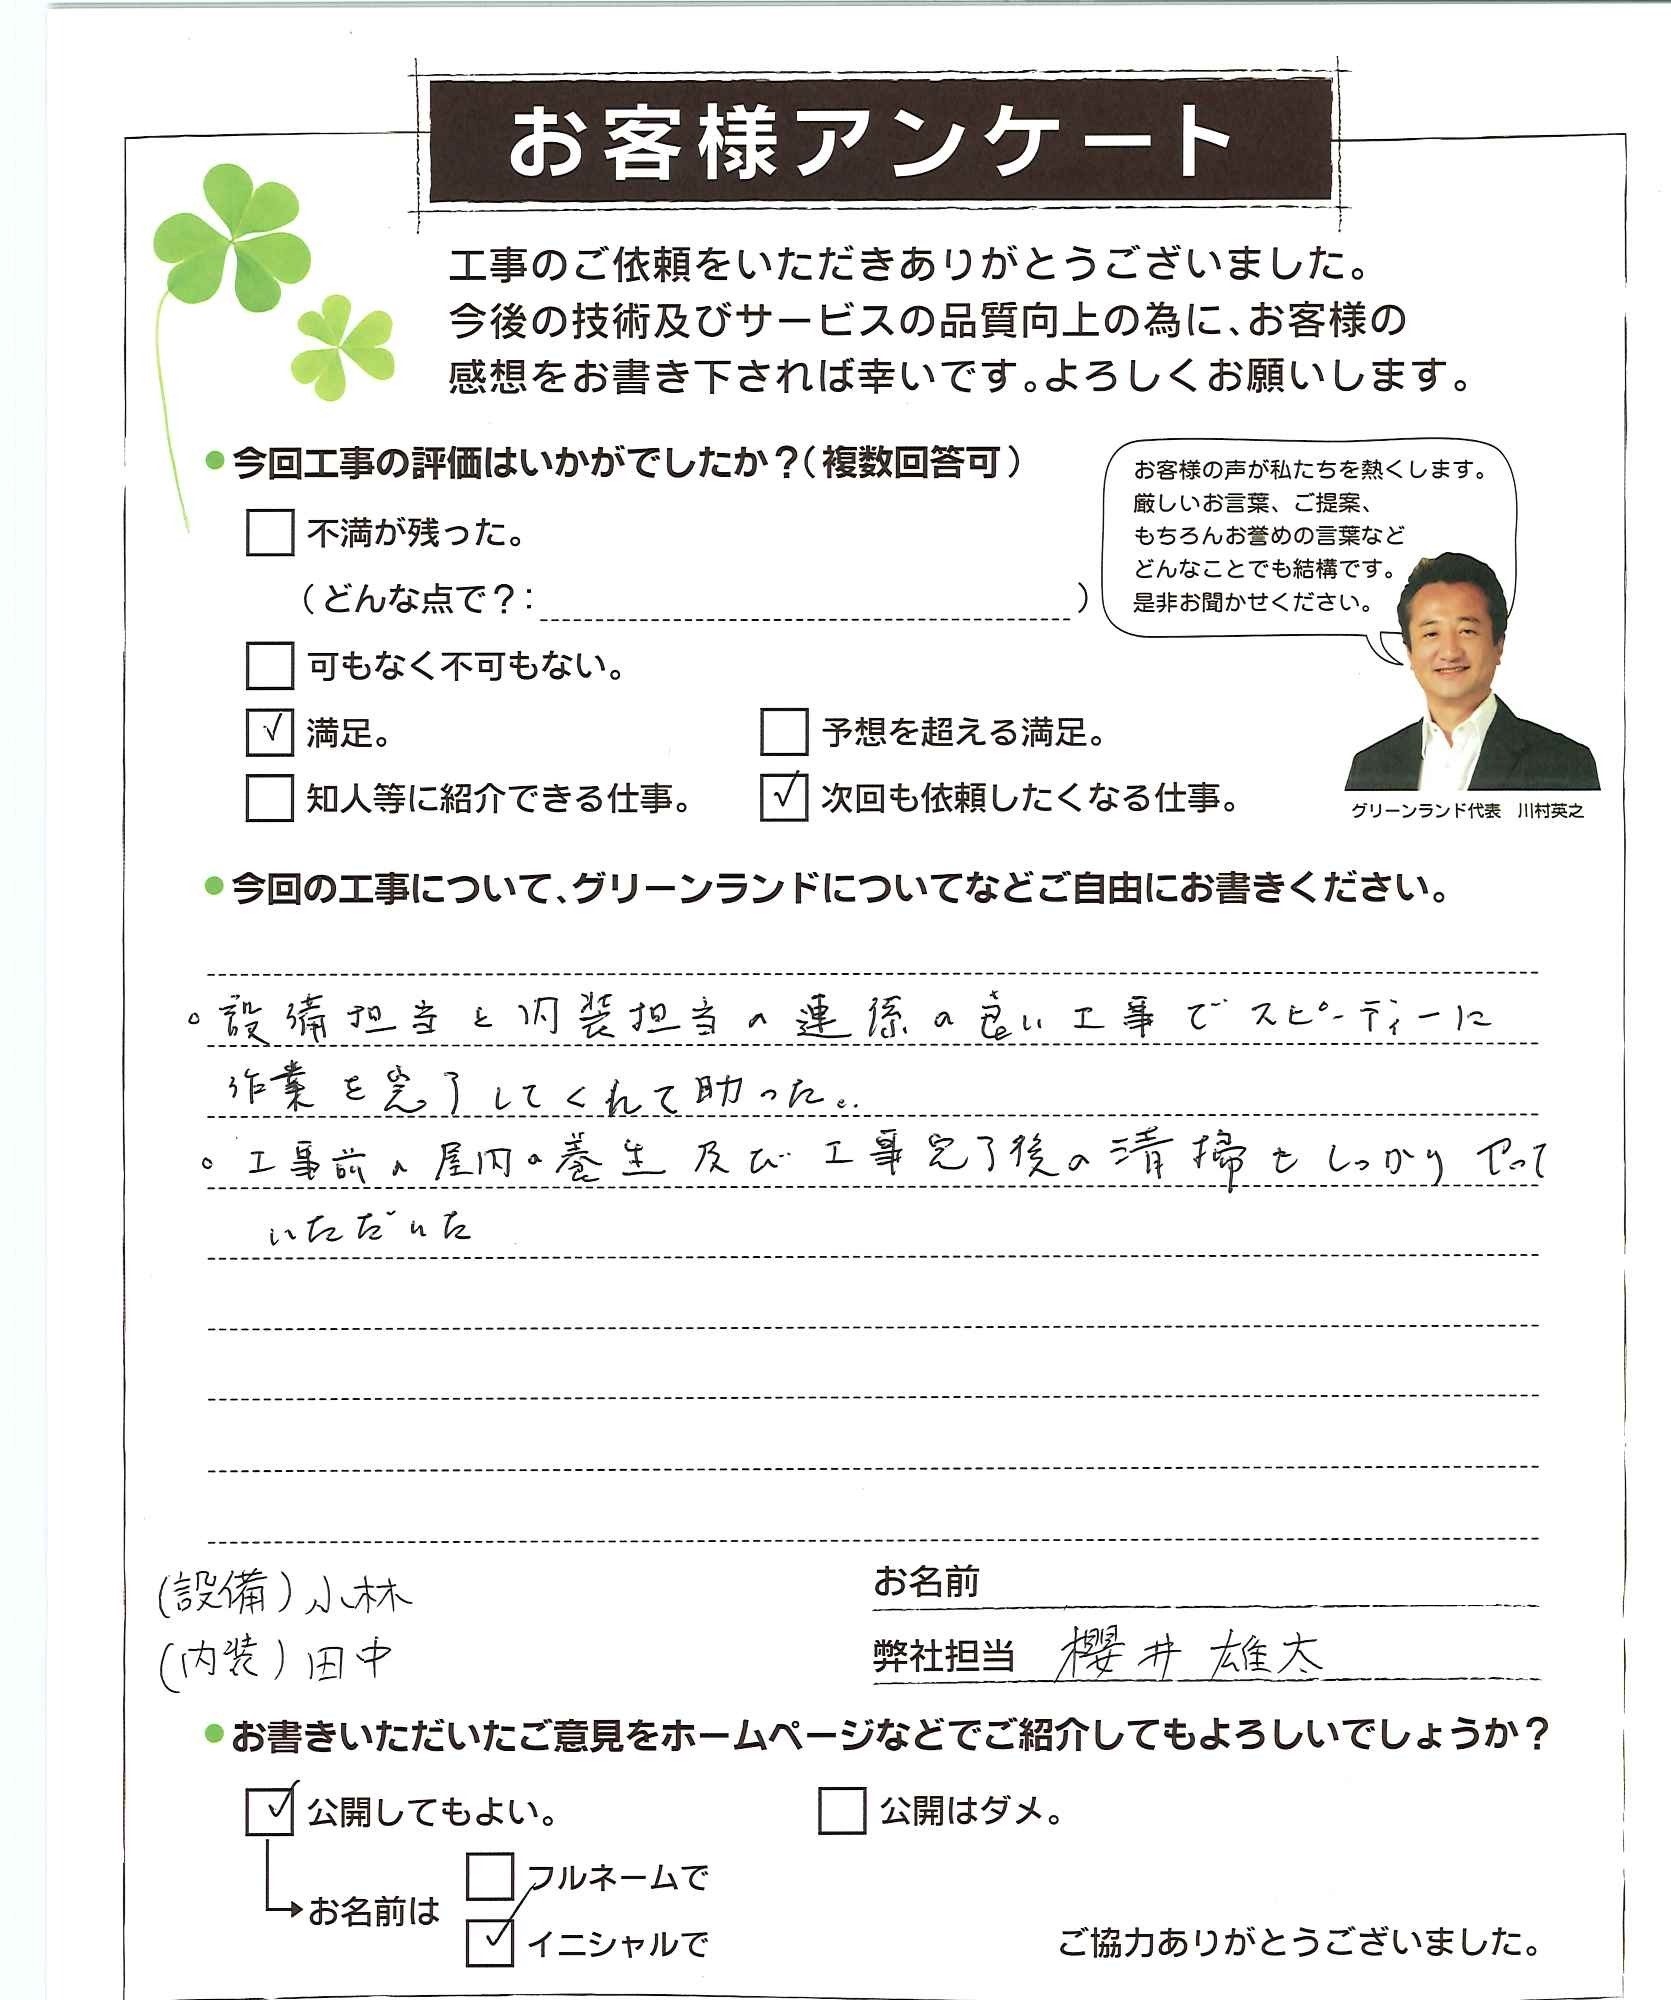 お客様アンケート
工事のご依頼をいただきありがとうございました。
今後の技術及びサービスの品質向上の為に、お客様の
感想をお書き下されば幸いです。よろしくお願いします。
●今回工事の評価はいかがでしたか？（複数回答可）
不満が残った。
（どんな点で？：　）
可もなく不可もない。
✓ 満足。
予想を超える満足。
知人等に紹介できる仕事。
✓ 次回も依頼したくなる仕事。
お客様の声が私たちを熱くします。
厳しいお言葉、ご提案、
もちろんお誉めの言葉など
どんなことでも結構です。
是非お聞かせください。
グリーンランド代表　川村英之
●今回の工事について、グリーンランドについてなどご自由にお書きください。
○設備担当と内装担当の連係の良い工事でスピーディーに
作業を完了してくれて助った。
○工事前の屋内の養生及び工事完了後の清掃もしっかりやって
いただいた
（設備）小林
（内装）田中
お名前
弊社担当 櫻井 雄太
●お書きいただいたご意見をホームページなどでご紹介してもよろしいでしょうか？
✓ 公開してもよい。
公開はダメ。
お名前は
フルネームで
✓ イニシャルで
ご協力ありがとうございました。